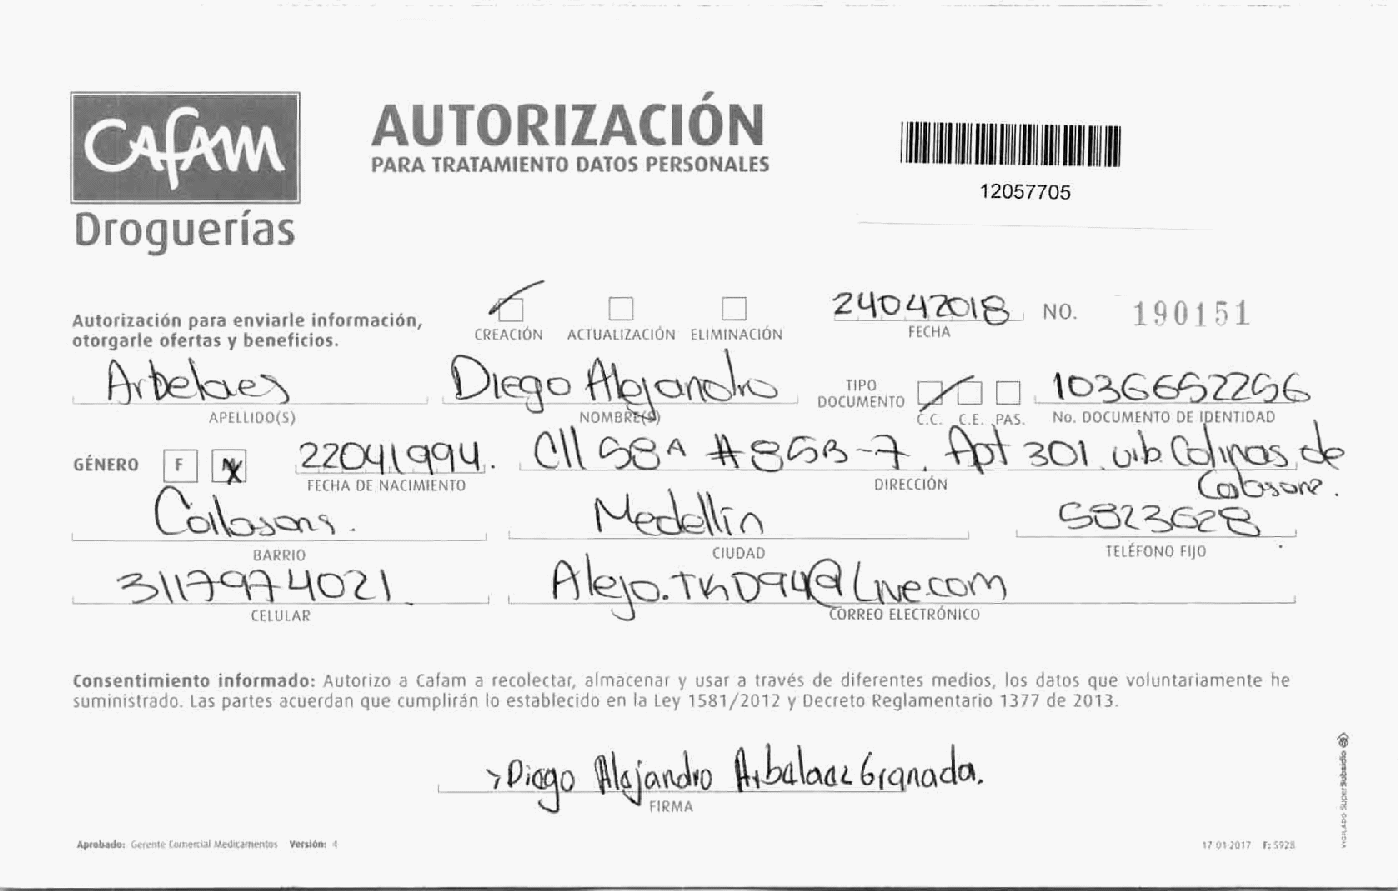 CAFAM
Droguerías
AUTORIZACIÓN
PARA TRATAMIENTO DATOS PERSONALES
12057705
Autorización para enviarle información,
otorgarle ofertas y beneficios.
CREACIÓN ACTUALIZACIÓN ELIMINACIÓN
24042018
FECHA
NO. 190151
Arbelaes
APELLIDO(S)
Diego Alejandro
NOMBRE(S)
TIPO
DOCUMENTO
C.C. C.E. PAS.
1036652256
No. DOCUMENTO DE IDENTIDAD
GÉNERO F
22041994.
FECHA DE NACIMIENTO
Cll 58A #85B-7. Apt 301 urb. Colinas de
Calasanz.
DIRECCIÓN
Callasans.
BARRIO
Medellín
CIUDAD
5823628
TELÉFONO FIJO
3117974021
CELULAR
Alejo.TKD94@Live.com
CORREO ELECTRÓNICO
Consentimiento informado: Autorizo a Cafam a recolectar, almacenar y usar a través de diferentes medios, los datos que voluntariamente he
suministrado. Las partes acuerdan que cumplirán lo establecido en la Ley 1581/2012 y Decreto Reglamentario 1377 de 2013.
Diego Alejandro Arbelaez Granada.
FIRMA
Aprobado: Gerente Comercial Medicamentos Versión: 4
17 01 2017 F: 5928
VIGILADO SuperSubsidio